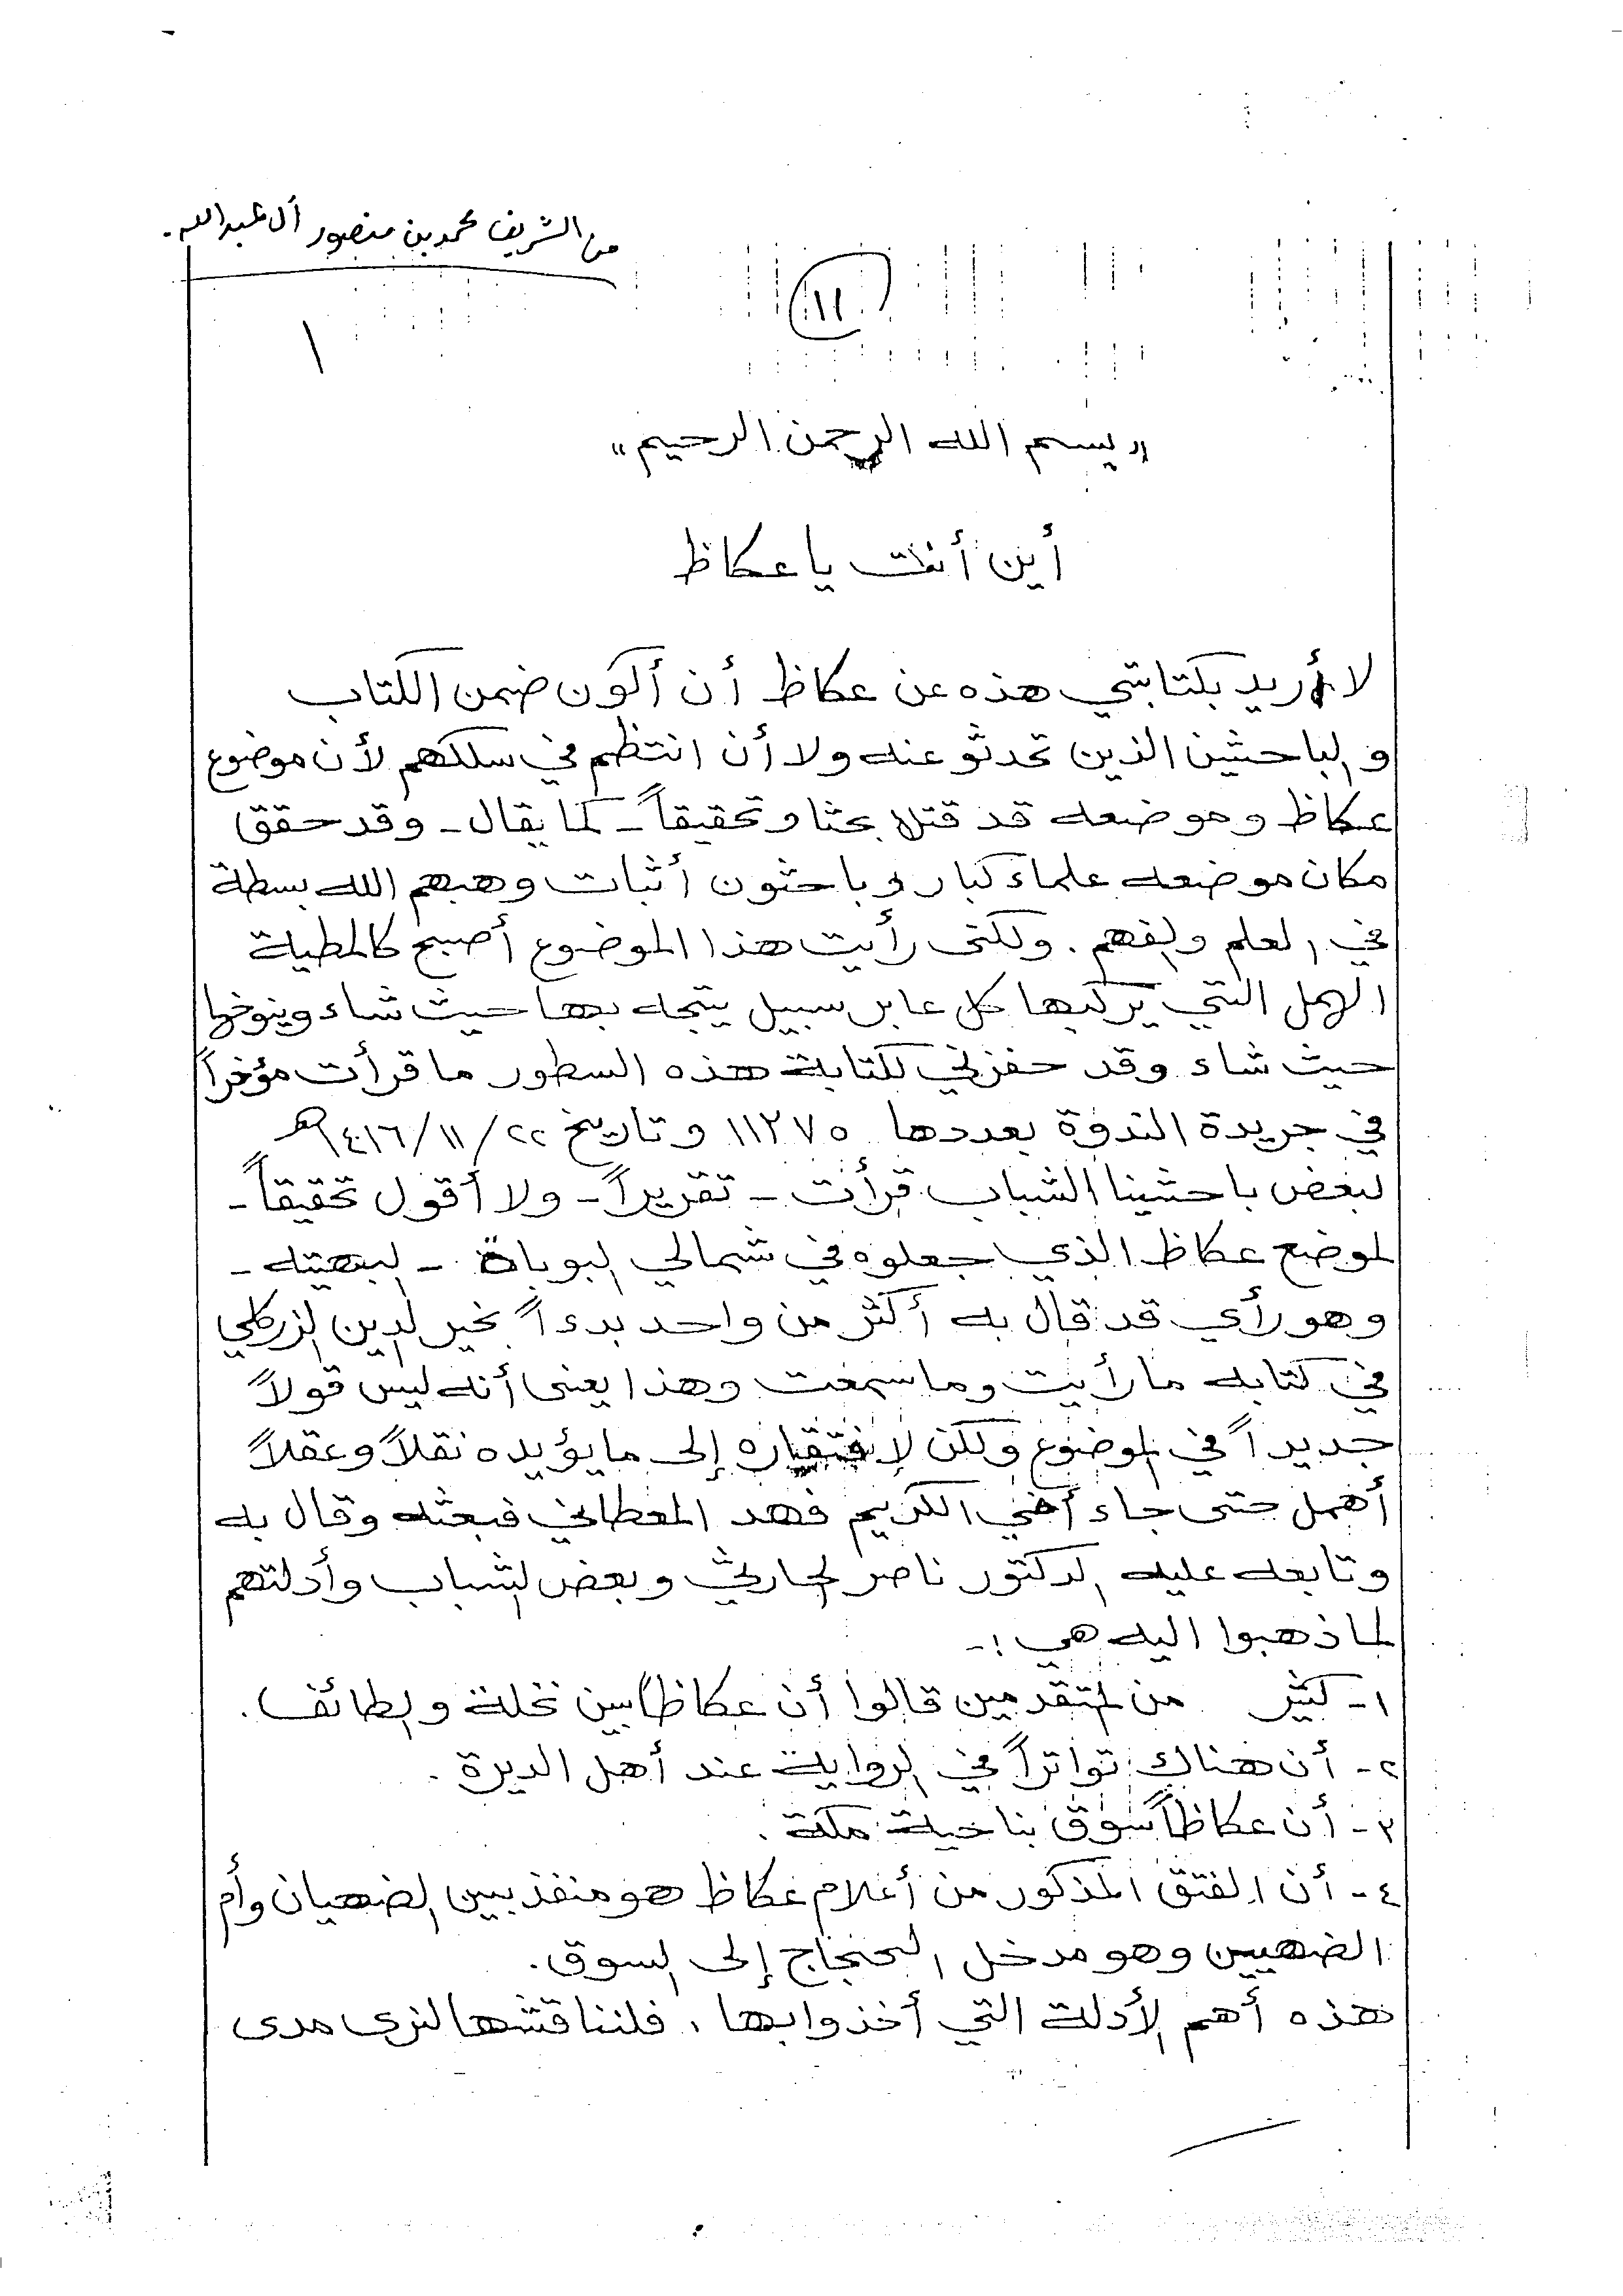 من الشريف محمد بن منصور آل عبدالله.
١١
١
"بسم الله الرحمن الرحيم"
أين أنت يا عكاظ
لا أريد بكتابتي هذه عن عكاظ أن أكون ضمن الكتاب
والباحثين الذين تحدثو عنه ولا أن انتظم في سلكهم لأن موضوع
عكاظ وموضعه قد قتل بحثا وتحقيقاً - كما يقال - وقد حقق
مكان موضعه علماء كبار وباحثون أثبات وهبهم الله بسطة
في العلم والفهم. ولكنى رأيت هذا الموضوع أصبح كالمطية
الهمل التي يركبها كل عابر سبيل يتجه بها حيث شاء وينوخها
حيث شاء وقد حفزني لكتابة هذه السطور ما قرأت مؤخراً
في جريدة الندوة بعددها ١١٢٧٥ وتاريخ ٢٢/١١/١٤١٦هـ
لبعض باحثينا الشباب قرأت - تقريراً - ولا أقول تحقيقاً -
لموضع عكاظ الذي جعلوه في شمالي البوباة - البهيته -
وهو رأي قد قال به أكثر من واحد بدءاً بخير الدين الزركلي
في كتابه ما رأيت وما سمعت وهذا يعنى أنه ليس قولاً
جديداً في الموضوع ولكن لافتقاره إلى ما يؤيده نقلاً وعقلاً
أهمل حتى جاء أخي الكريم فهد المعطاني فبعثه وقال به
وتابعه عليه الدكتور ناصر الحارثي وبعض الشباب وأدلتهم
لما ذهبوا اليه هي :-
١- كثير من المتقدمين قالوا أن عكاظاً بين نخلة والطائف.
٢- أن هناك تواتراً في الرواية عند أهل الديرة.
٣- أن عكاظاً سوق بناحية مكة.
٤- أن الفتق المذكور من أعلام عكاظ هو منفذ بين الضهيان وأم
الضهيين وهو مدخل الحجاج إلى السوق.
هذه أهم الأدلة التي أخذوا بها، فلنناقشها لنرى مدى